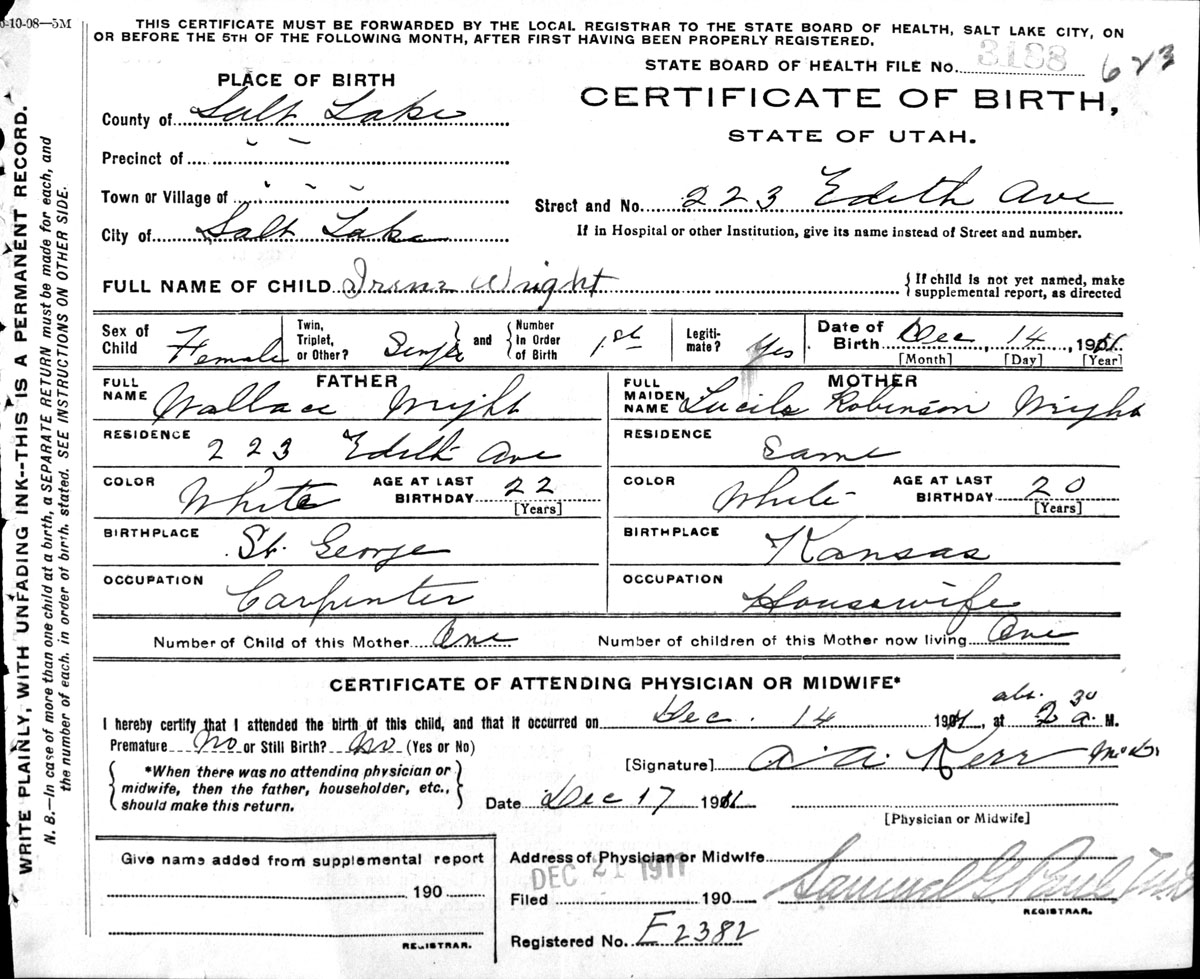 0-10-08—5M
THIS CERTIFICATE MUST BE FORWARDED BY THE LOCAL REGISTRAR TO THE STATE BOARD OF HEALTH, SALT LAKE CITY, ON
OR BEFORE THE 5TH OF THE FOLLOWING MONTH, AFTER FIRST HAVING BEEN PROPERLY REGISTERED.
STATE BOARD OF HEALTH FILE No. 3188 623
PLACE OF BIRTH
CERTIFICATE OF BIRTH,
STATE OF UTAH.
County of Salt Lake
Precinct of " "
Town or Village of
Street and No. 223 Edith Ave
City of Salt Lake
If in Hospital or other Institution, give its name instead of Street and number.
FULL NAME OF CHILD Irene Wright
{ If child is not yet named, make
supplemental report, as directed
Sex of Child Female
Twin, Triplet, or Other? Single } and { Number In Order of Birth 1st
Legiti-mate? Yes
Date of Birth Dec, 14, 1911
[Month] [Day] [Year]
FATHER
FULL NAME Wallace Wright
MOTHER
FULL MAIDEN NAME Lucile Robinson Wright
RESIDENCE 223 Edith Ave
RESIDENCE Same
COLOR White AGE AT LAST BIRTHDAY 22 [Years]
COLOR White AGE AT LAST BIRTHDAY 20 [Years]
BIRTHPLACE St. George
BIRTHPLACE Kansas
OCCUPATION Carpenter
OCCUPATION Housewife
Number of Child of this Mother One Number of children of this Mother now living One
CERTIFICATE OF ATTENDING PHYSICIAN OR MIDWIFE*
I hereby certify that I attended the birth of this child, and that it occurred on Dec. 14 1911, at abt. 2 30 a. M.
Premature No or Still Birth? No (Yes or No)
[Signature] A. A. Kerr M.D.
{ *When there was no attending physician or
midwife, then the father, householder, etc.,
should make this return. }
Date Dec 17 1911
[Physician or Midwife]
Give name added from supplemental report
190
REGISTRAR.
Address of Physician or Midwife
DEC 21 1911
Filed 190 Samuel G. Paul M.D.
REGISTRAR.
Registered No. F2382
WRITE PLAINLY, WITH UNFADING INK--THIS IS A PERMANENT RECORD.
N. B.—In case of more than one child at a birth, a SEPARATE RETURN must be made for each, and
the number of each, in order of birth, stated. SEE INSTRUCTIONS ON OTHER SIDE.